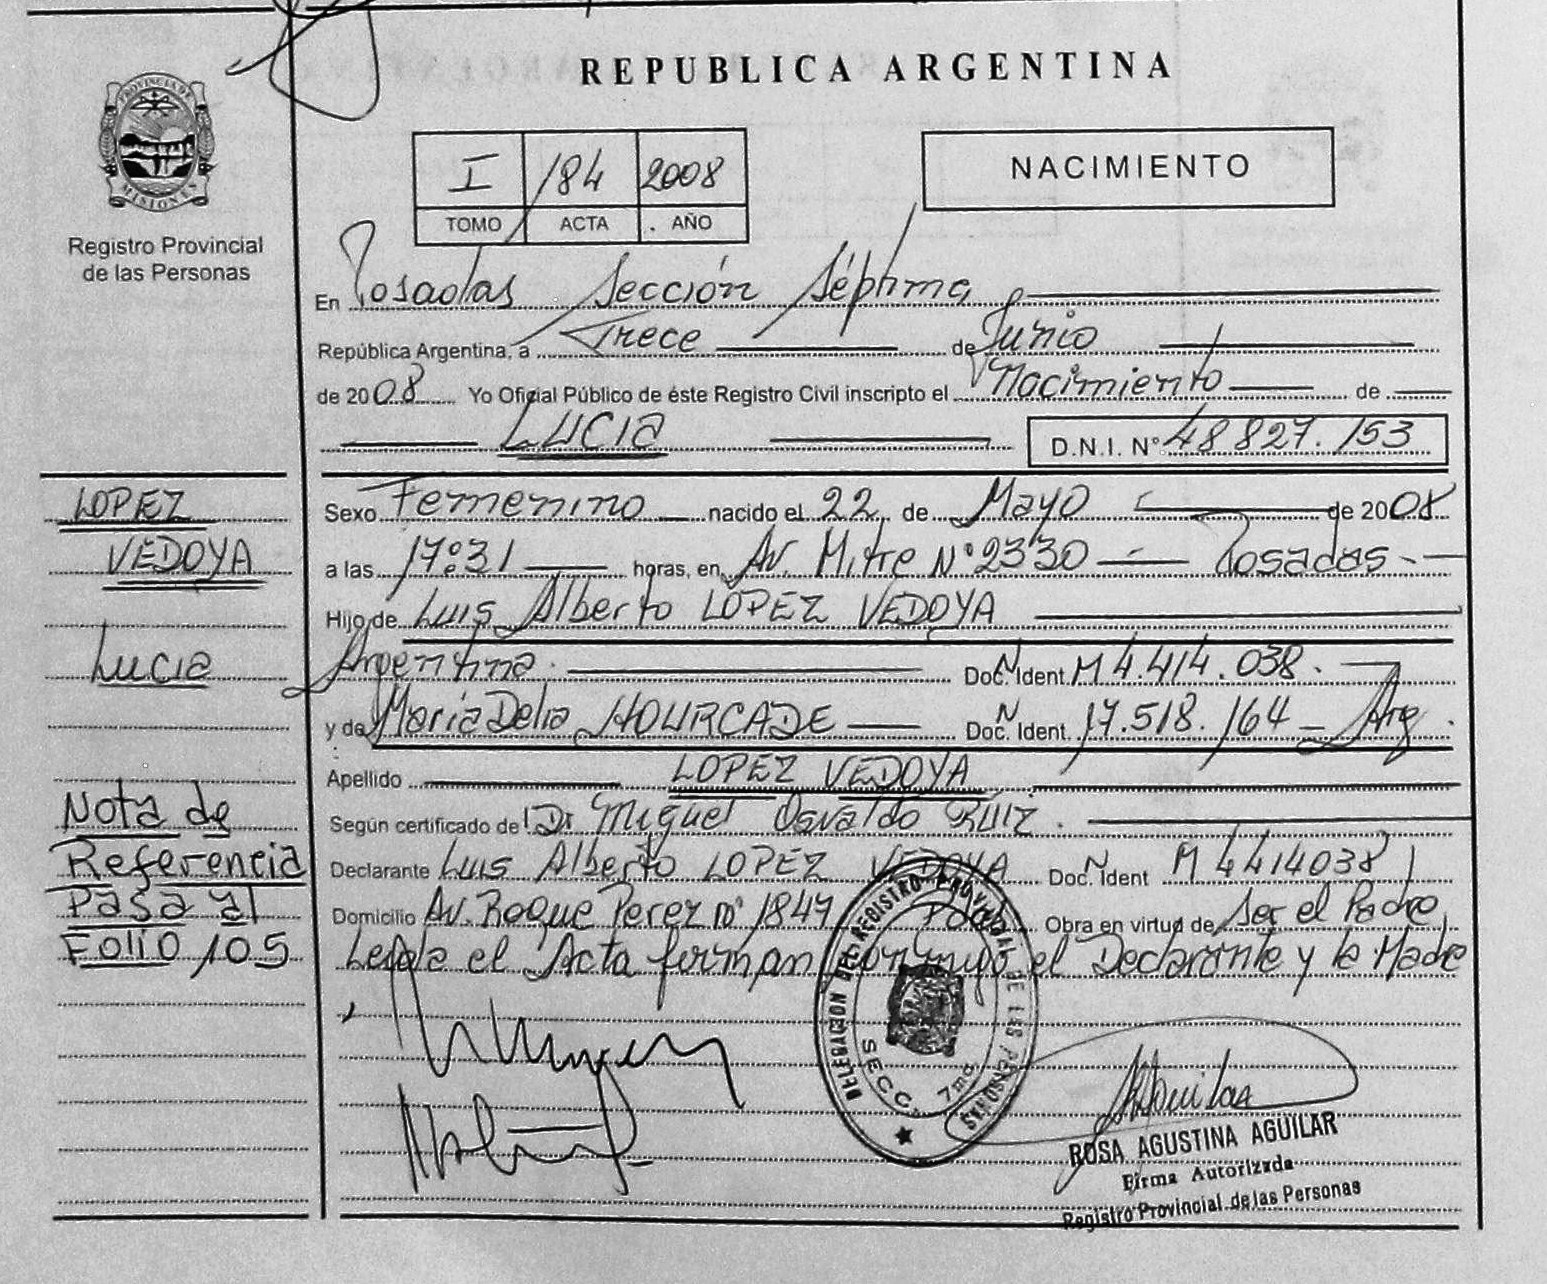 REPUBLICA ARGENTINA
PROVINCIA DE MISIONES
Registro Provincial
de las Personas
I 184 2008
TOMO ACTA AÑO
NACIMIENTO
En Posadas Sección Séptima
República Argentina, a Trece de Junio
de 2008 Yo Oficial Público de éste Registro Civil inscripto el Nacimiento de
Lucia D.N.I. N° 48827.153
LOPEZ
VEDOYA
Lucia
Nota de
Referencia
Pasa al
Folio 105
Sexo Femenino nacido el 22 de Mayo de 2008
a las 17:31 horas, en Av. Mitre N° 2330 — Posadas
Hijo de Luis Alberto LOPEZ VEDOYA
Argentina. Doc. N Ident M 4.414.038.
y de Maria Delia HOURCADE Doc. N Ident. 17.518.164 — Arg.
Apellido LOPEZ VEDOYA
Según certificado de Dr Miguel Osvaldo Ruiz.
Declarante Luis Alberto LOPEZ VEDOYA Doc. N Ident M 4414038
Domicilio Av. Roque Perez n° 1847 Obra en virtud de Ser el Padre
Leida el Acta firman conmigo el Declarante y la Madre
DELEGACION DEL REGISTRO PROVINCIAL DE LAS PERSONAS
SECC. 7ma.
ROSA AGUSTINA AGUILAR
Firma Autorizada
Registro Provincial de las Personas